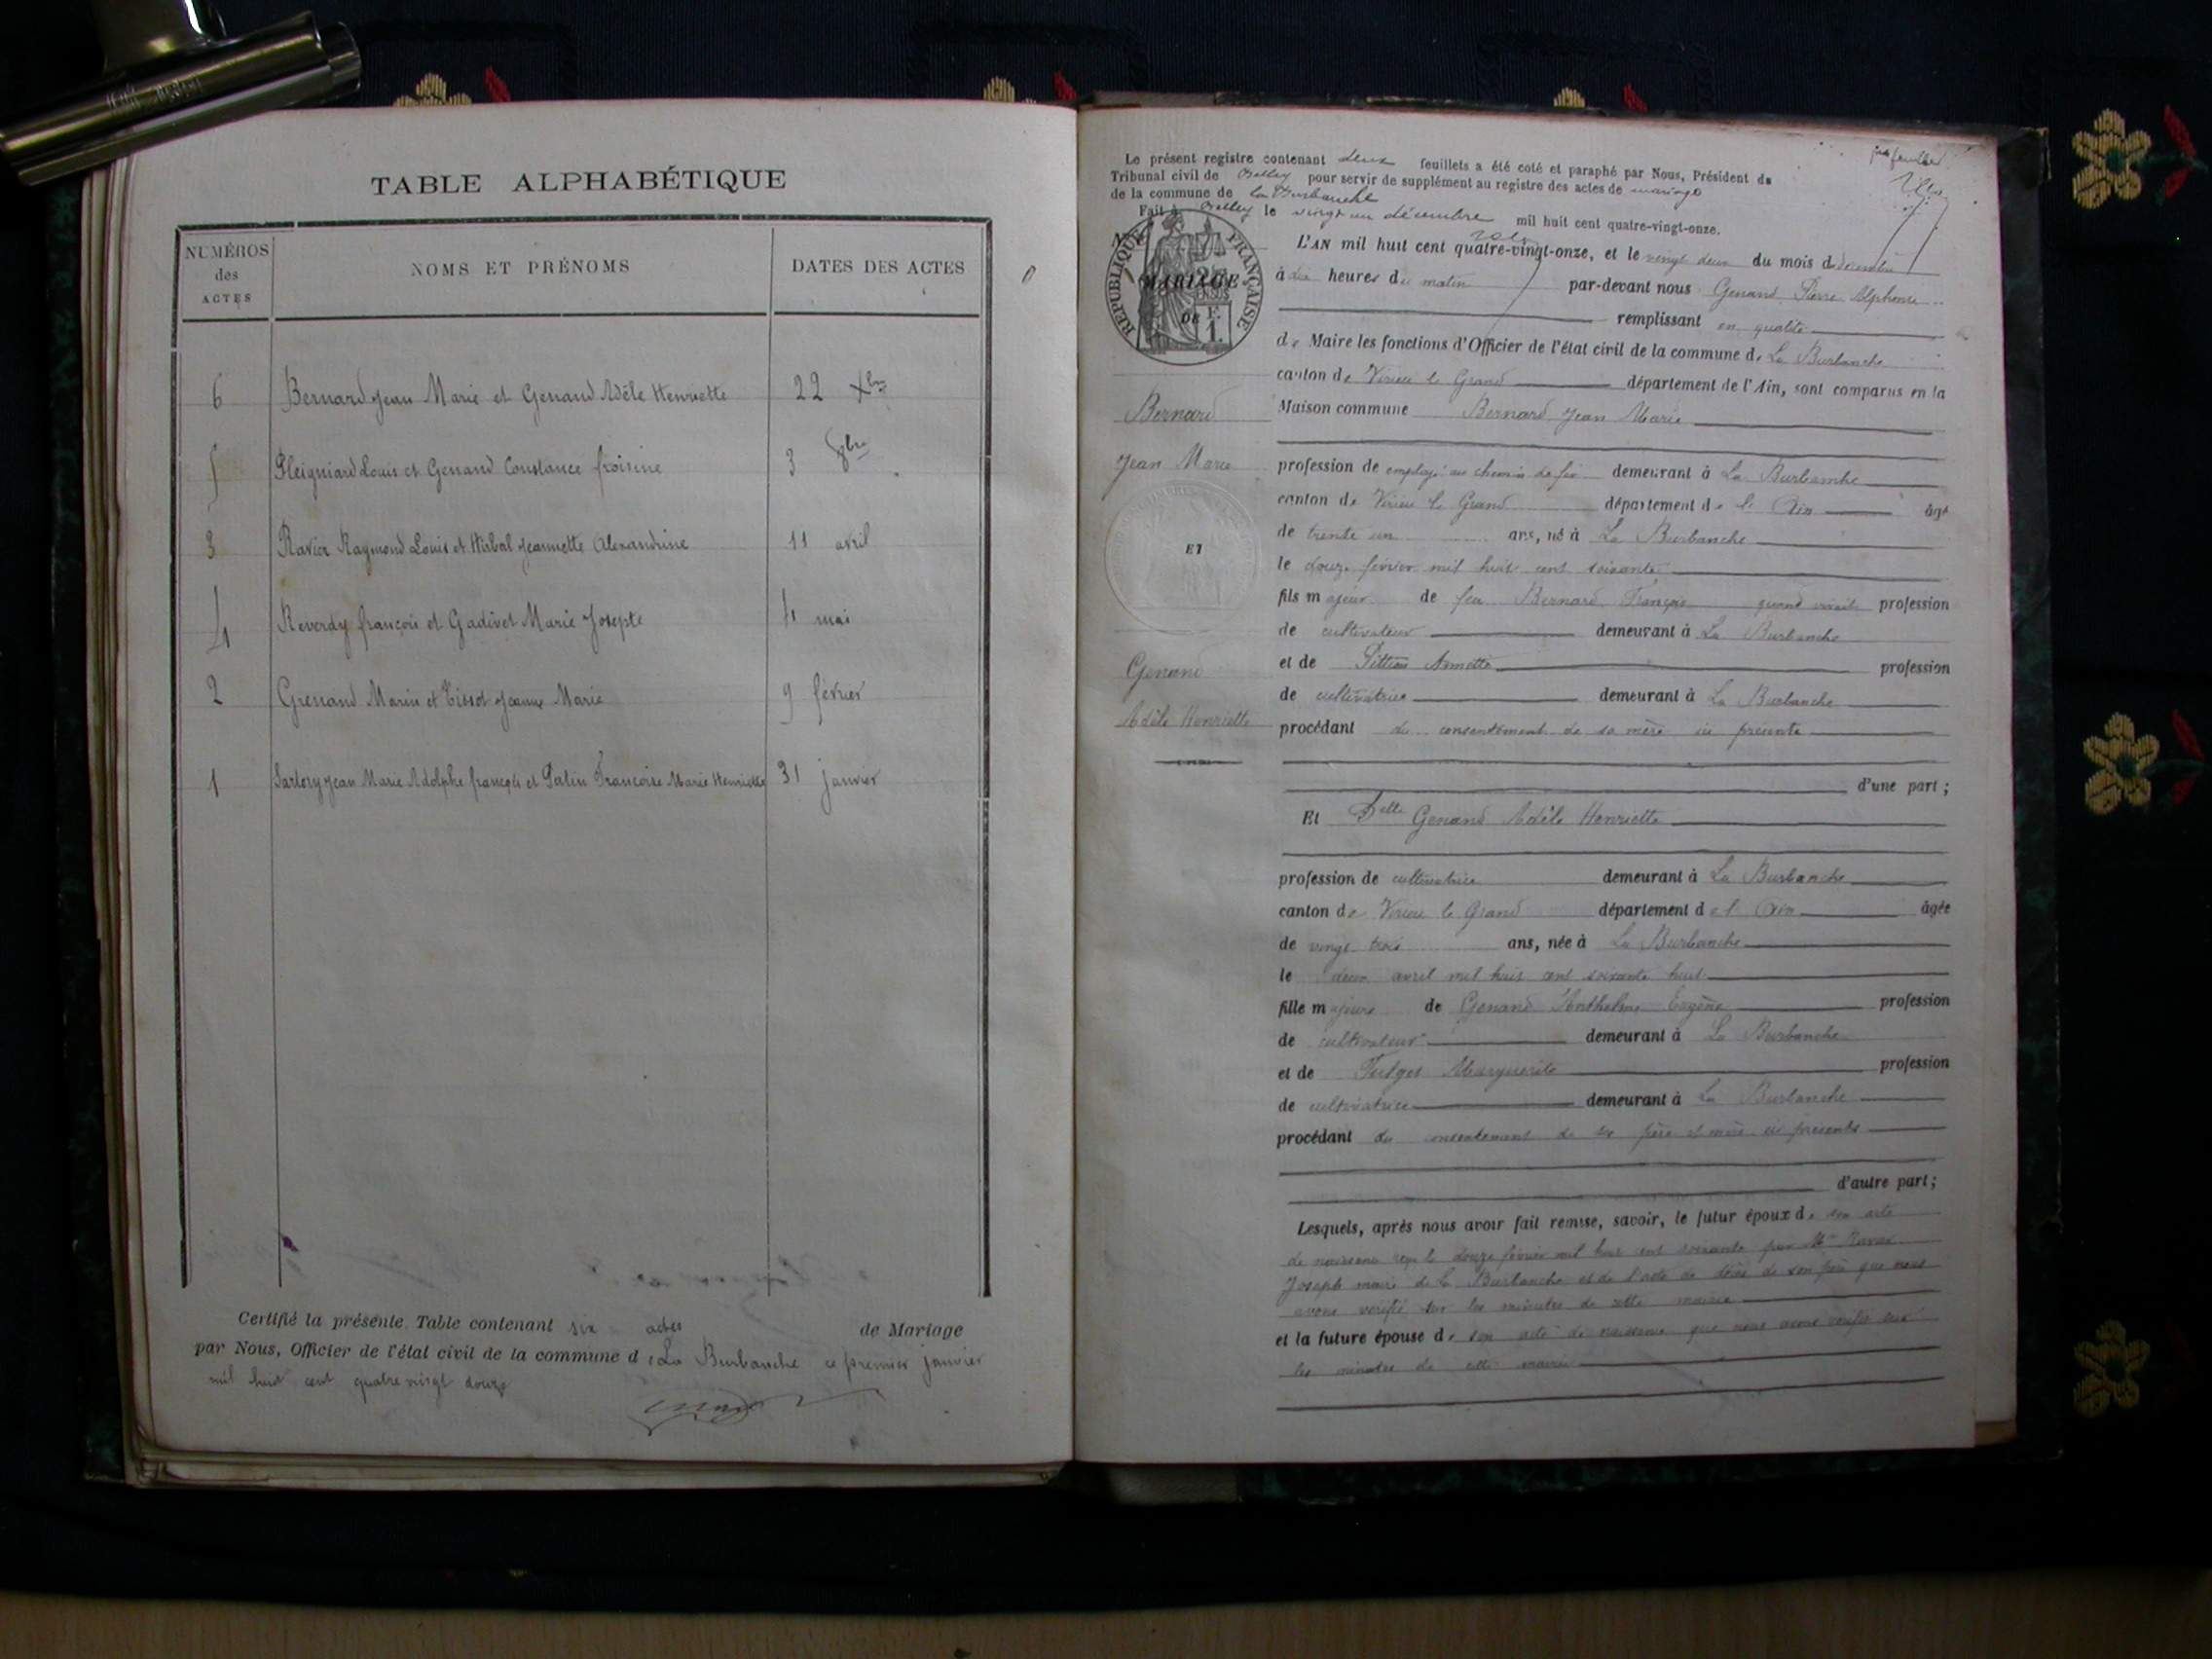 TABLE ALPHABÉTIQUE
NUMÉROS des ACTES
NOMS ET PRÉNOMS
DATES DES ACTES
6 Bernard Jean Marie et Genand Adèle Henriette 22 Xbre
5 Pleigniard Louis et Genand Constance froisine 3 8bre
3 Ravier Raymond Louis et Hisbal Jeannette Alexandrine 11 avril
4 Reverdy françois et Gadivet Marie Josepte 4 mai
2 Grenand Marin et Tissot Jeanne Marie 9 février
1 Sartory Jean Marie Adolphe françois et Patin Françoise Marie Henriette 31 janvier
Certifié la présente Table contenant six actes de Mariage
par Nous, Officier de l'état civil de la commune de La Burbanche ce premier janvier
mil huit cent quatre vingt douze
Le présent registre contenant deux feuillets a été coté et paraphé par Nous, Président du
Tribunal civil de Belley pour servir de supplément au registre des actes de mariage
de la commune de la Burbanche
Fait à Belley le vingt un décembre mil huit cent quatre-vingt-onze.
RÉPUBLIQUE FRANÇAISE
MARIAGE
DE
L'AN mil huit cent quatre-vingt-onze, et le vingt deux du mois de décembre
à dix heures du matin par-devant nous Genand Pierre Alphonse
remplissant en qualité
de Maire les fonctions d'Officier de l'état civil de la commune de La Burbanche
canton de Virieu le Grand département de l'Ain, sont comparus en la
Maison commune Bernard Jean Marie
Bernard
Jean Marie
ET
Genand
Adèle Henriette
profession de employé au chemin de fer demeurant à La Burbanche
canton de Virieu le Grand département de l' Ain âgé
de trente un ans, né à La Burbanche
le douze février mil huit cent soixante
fils majeur de feu Bernard François quand vivait profession
de cultivateur demeurant à La Burbanche
et de Pittion Annette profession
de cultivatrice demeurant à La Burbanche
procédant du consentement de sa mère ici présente
d'une part ;
Et Delle Genand Adèle Henriette
profession de cultivatrice demeurant à La Burbanche
canton de Virieu le Grand département de l' Ain âgée
de vingt trois ans, née à La Burbanche
le deux avril mil huit cent soixante huit
fille majeure de Genand Anthelme Eugène profession
de cultivateur demeurant à La Burbanche
et de Marguerite profession
de cultivatrice demeurant à La Burbanche
procédant du consentement de ses père et mère ici présents
d'autre part ;
Lesquels, après nous avoir fait remise, savoir, le futur époux de son acte
de naissance reçu le douze février mil huit cent soixante par Mr Ravier
Joseph maire de La Burbanche et de l'acte de décès de son père que nous
avons vérifié sur les minutes de cette mairie
et la future épouse de son acte de naissance que nous avons vérifié sur
les minutes de cette mairie